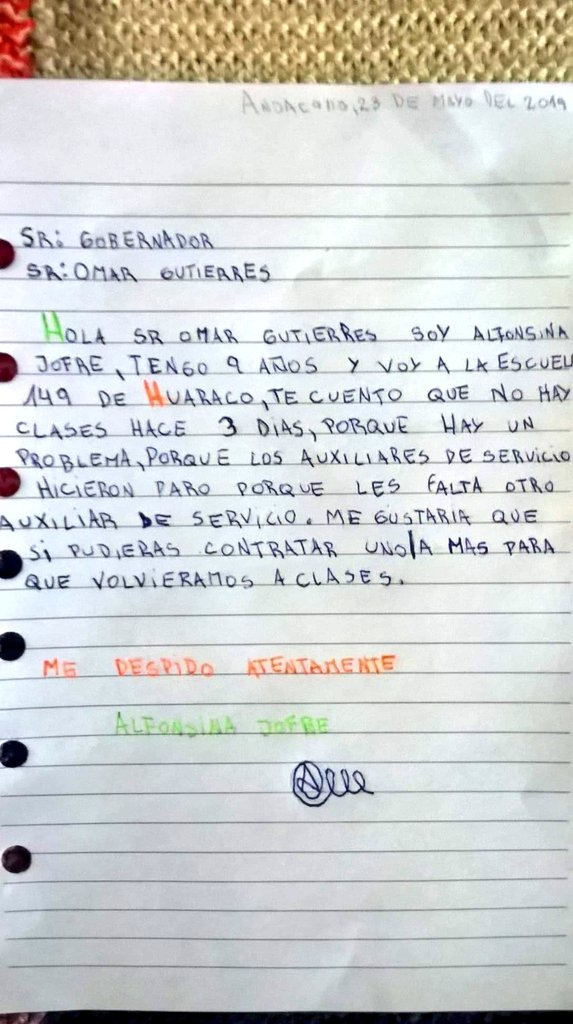 ANDACOLLO, 23 DE MAYO DEL 2019
SR: GOBERNADOR
SR: OMAR GUTIERRES
HOLA SR OMAR GUTIERRES SOY ALFONSINA
JOFRE, TENGO 9 AÑOS Y VOY A LA ESCUEL
149 DE HUARACO, TE CUENTO QUE NO HAY
CLASES HACE 3 DIAS, PORQUE HAY UN
PROBLEMA, PORQUE LOS AUXILIARES DE SERVICIO
HICIERON PARO PORQUE LES FALTA OTRO
AUXILIAR DE SERVICIO. ME GUSTARIA QUE
SI PUDIERAS CONTRATAR UNO/A MAS PARA
QUE VOLVIERAMOS A CLASES.
ME DESPIDO ATENTAMENTE
ALFONSINA JOFRE